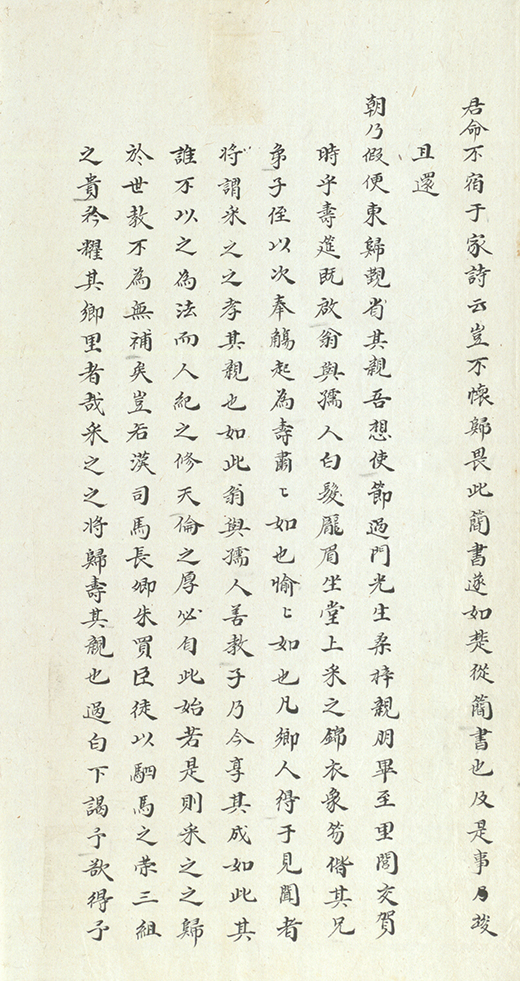 君命不宿于家詩云豈不懷歸畏此簡書遂如楚從簡書也及是事乃竣
且還
朝乃假便東歸覲省其親吾想使節過門光生桑梓親朋畢至里閭交賀
時乎壽筵既啟翁與孺人白髮龐眉坐堂上采之錦衣象笏偕其兄
弟子侄以次奉觴起為壽肅〻如也愉〻如也凡鄉人得于見聞者
將謂采之之孝其親也如此翁與孺人善教子乃今享其成如此其
誰不以之為法而人紀之修天倫之厚必自此始若是則采之之歸
於世教不為無補矣豈若漢司馬長卿朱買臣徒以駟馬之榮三組
之貴矜耀其鄉里者哉采之之將歸壽其親也過白下謁予欲得予